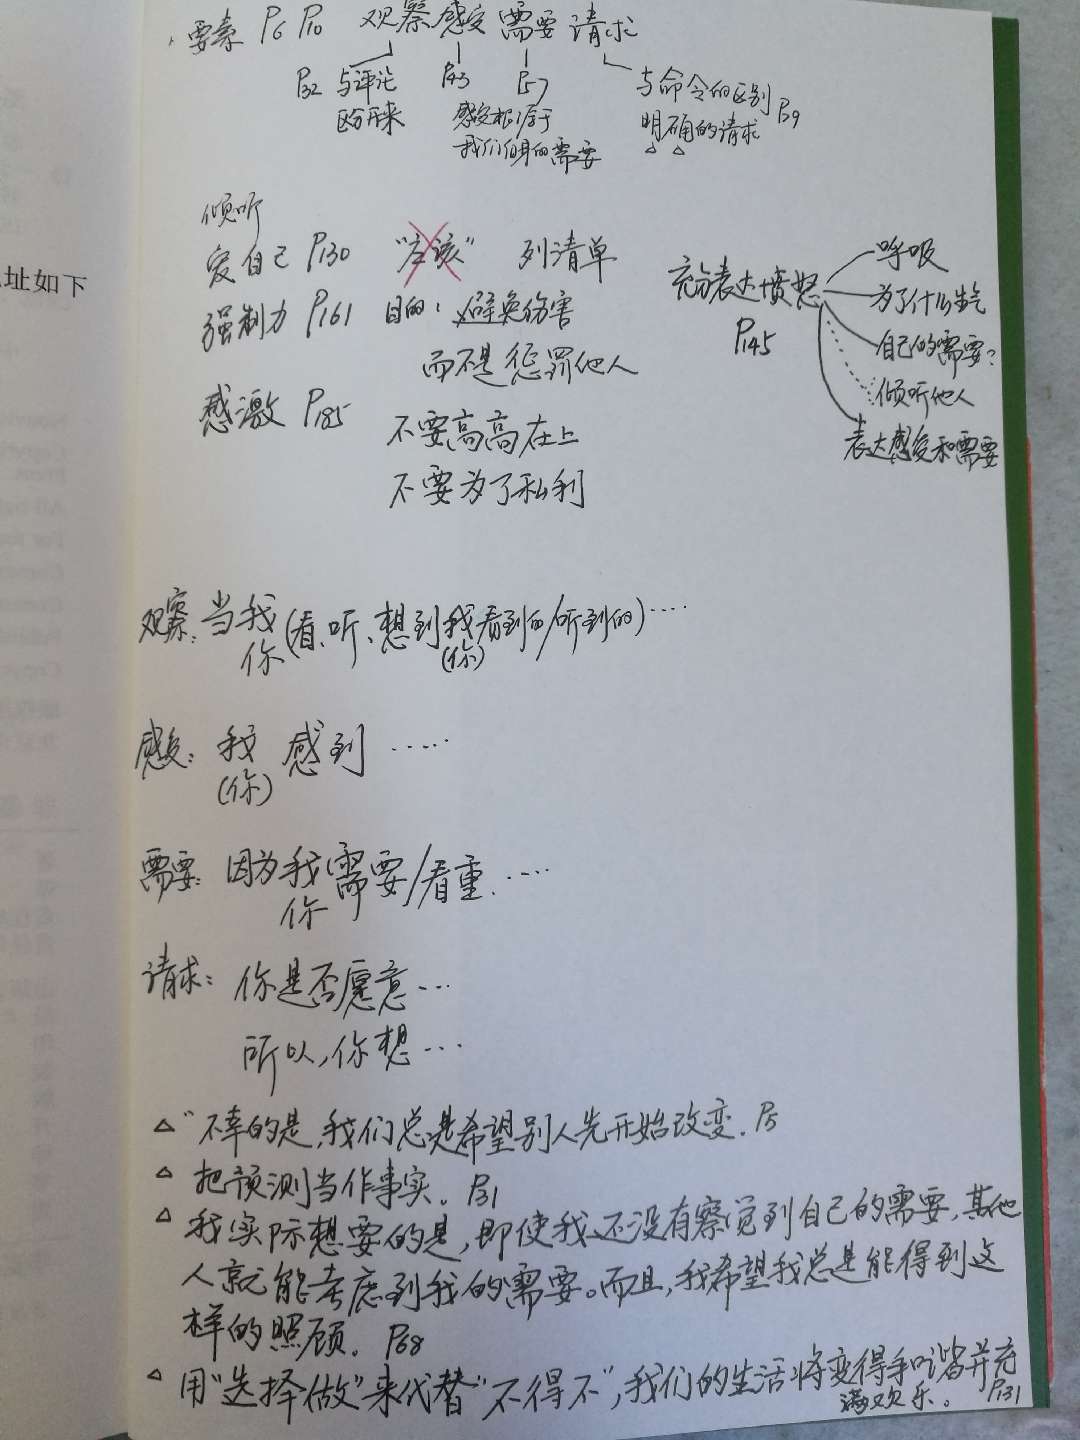 要素 P6 P10 观察 感受 需要 请求
P32 与评论
区分开来
P43
P57
感受根源于
我们自身的需要
与命令的区别
明确的请求
倾听
爱自己 P130 "应该" 列清单
强制力 P161 目的：避免伤害
而不是惩罚他人
感激 P185
不要高高在上
不要为了私利
充分表达愤怒
P145
呼吸
为了什么生气
自己的需要？
倾听他人
表达感受和需要
观察：当我(看、听、想到我看到的/听到的)····
你 (你)
感受：我 感到 ·····
(你)
需要：因为我需要/看重·····
你
请求：你是否愿意···
所以，你想···
△"不幸的是，我们总是希望别人先开始改变. P5
△ 把预测当作事实。P31
△ 我实际想要的是，即使我还没有察觉到自己的需要，其他
人就能考虑到我的需要。而且，我希望我总是能得到这
样的照顾。P68
△ 用"选择做"来代替"不得不"，我们的生活将变得和谐并充
满欢乐。P131
址如下